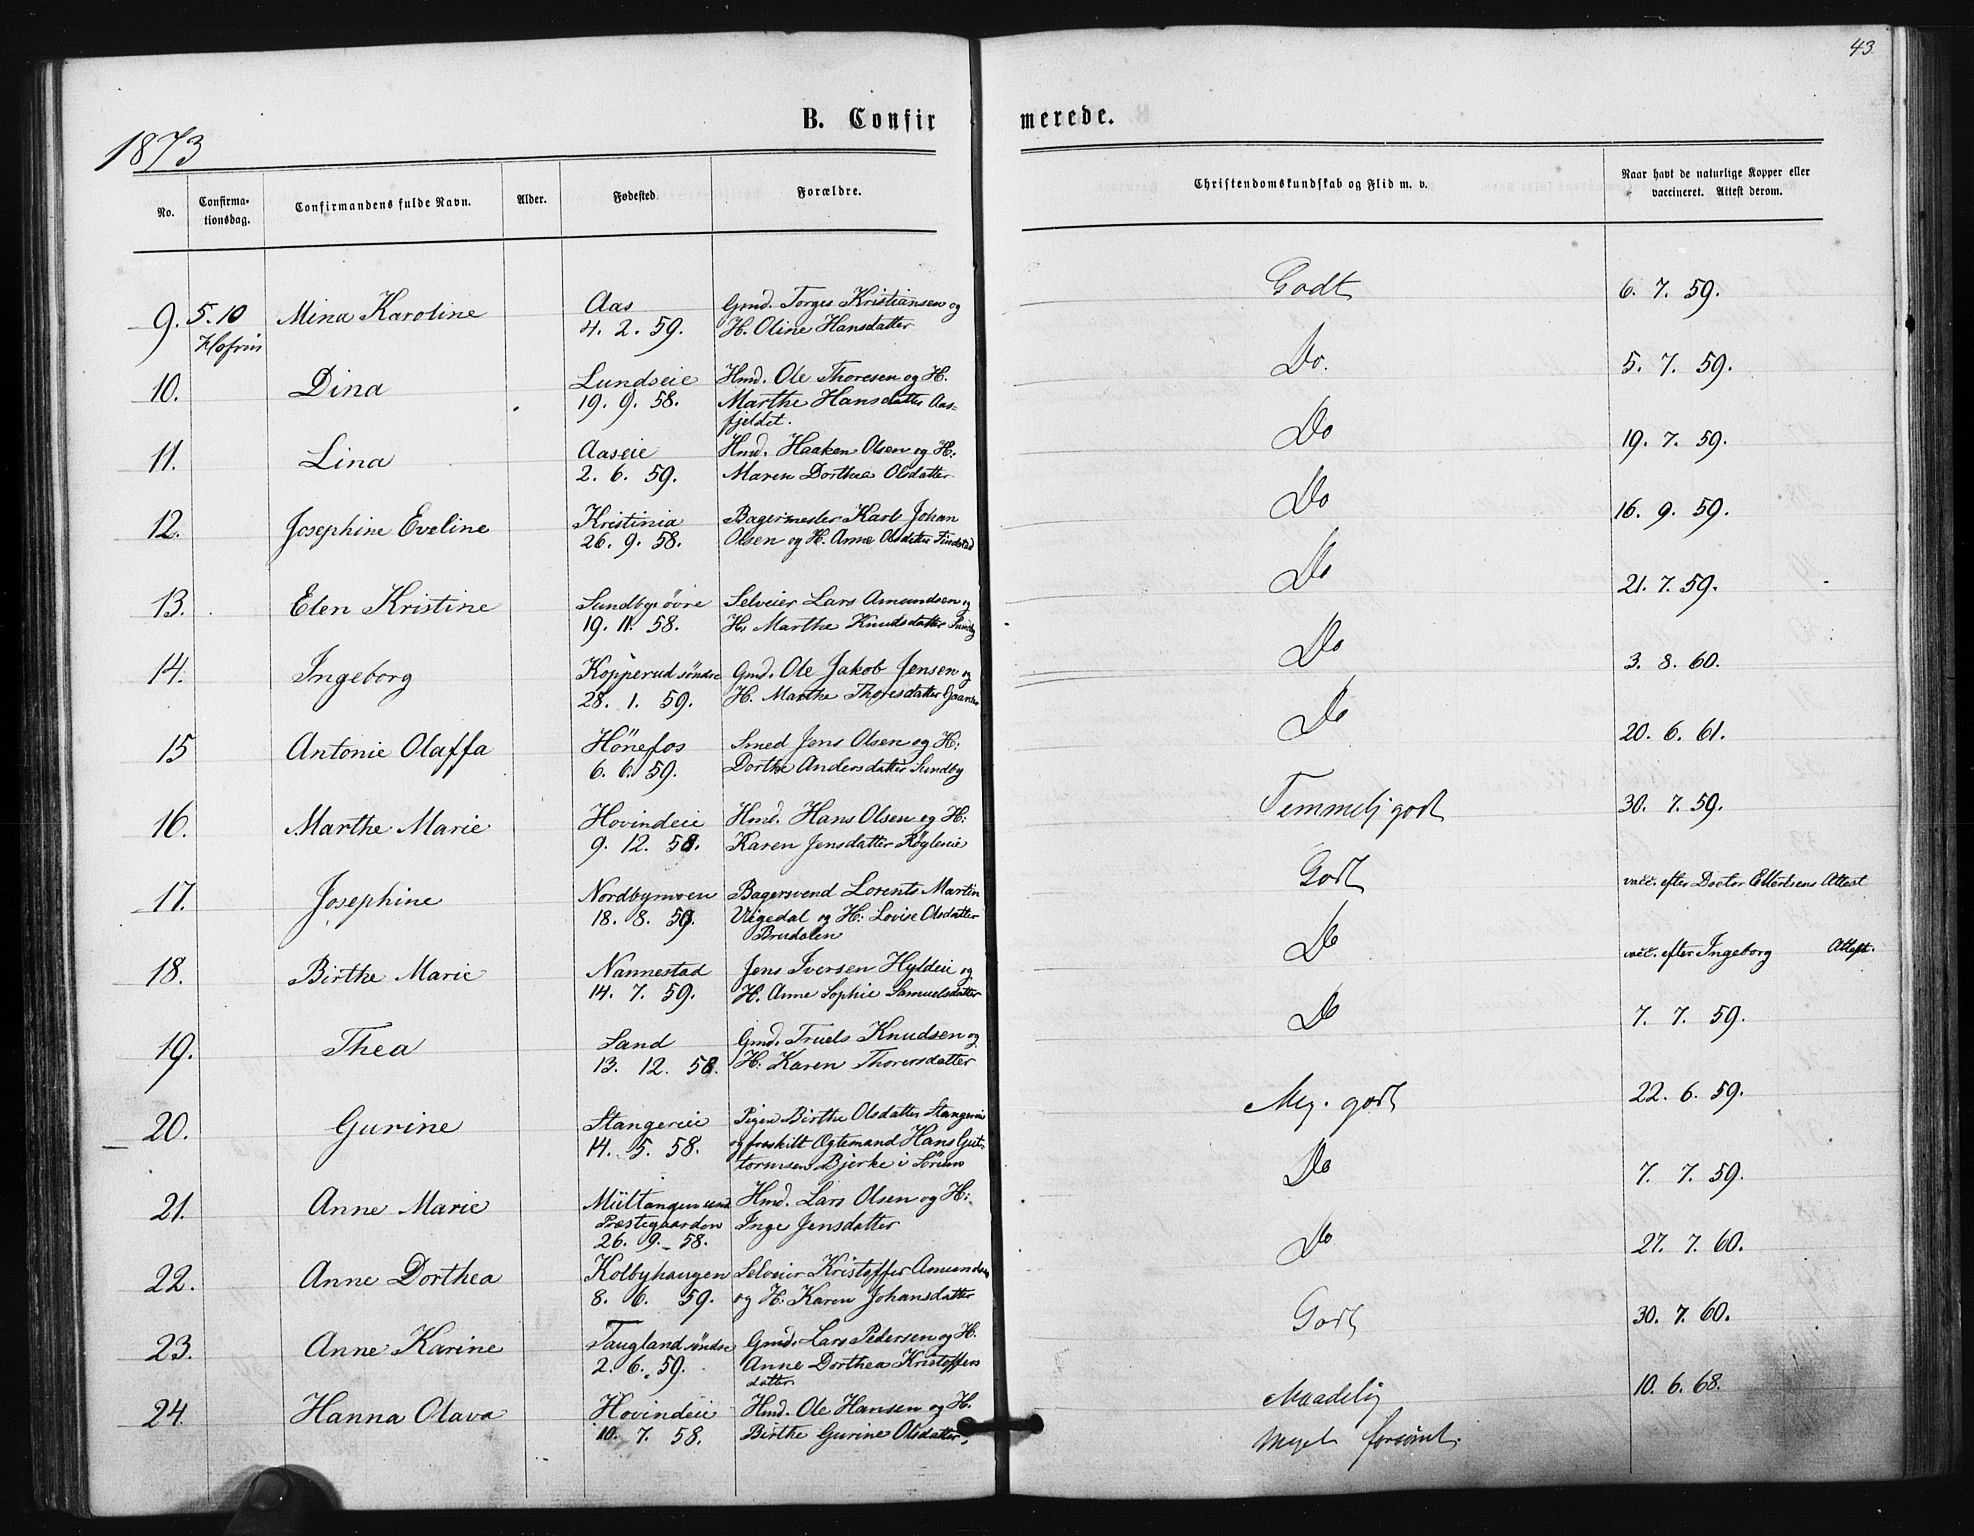 43
B. Confirmerede.
1873
No.
Confirmationsdag.
Confirmandens fulde Navn.
Alder.
Fødested.
Forældre.
Christendomskundskab og Flid m. v.
Naar havt de naturlige Kopper eller vaccineret. Attest derom.
9. 5.10 Mina Karoline Aas Gmd. Torges Kristiansen og Godt 6. 7. 59.
4. 2. 59. H. Oline Hansdatter
10. Dina Lundseie Hmd. Ole Thoresen og H. Do. 5. 7. 59.
19. 9. 58. Marthe Hansdatter Aas-
fjeldet.
11. Lina Aaseie Hmd. Haaken Olsen og H: Do 19. 7. 59.
2. 6. 59. Maren Dorthea Olsdatter
12. Josephine Eveline Kristinia Bagermester Karl Johan Do 16. 9. 59.
26. 9. 58. Olsen og H. Anne Olsdatter
13. Elen Kristine Sundby øvre Selveier Lars Amundsen og Do 21. 7. 59.
19. 11. 58. H: Marthe Knudsdatter Sundby
14. Ingeborg Kopperud søndre Gmd. Ole Jakob Jensen og Do 3. 8. 60.
28. 1. 59. H. Marthe Thoresdatter
15 Antonie Olaffa Hønefos Smed Jens Olsen og H: Do 20. 6. 61.
6. 6. 59. Dorthe Andersdatter Sundby
16. Marthe Marie Hovindeie Hmd. Hans Olsen og H: Temmelig godt 30. 7. 59.
9. 12. 58. Karen Jensdatter Røgleeie
17. Josephine Nordbymoen Bagersvend Lorents Martin Godt vacc. efter Doctor Ellertsens Attest
18. 8. 59. Vigedal og H: Lovise Olsdatter
Brudalen
18. Birthe Marie Nannestad Jens Iversen Hyldeie og Do vacc. efter Ingeborg Attest.
14. 7. 59. H. Anne Sophie Samuelsdatter
19. Thea Sand Gmd. Truels Knudsen og Do 7. 7. 59.
13. 12. 58. H: Karen Thorersdatter
20. Gurine Stangereie Pigen Birthe Olsdatter Stangereie Meg. godt 22. 6. 59.
14. 5. 58. og fraskilt Ægtemand Hans Gut-
tormsen Bjerke i Sörum
21. Anne Marie Miiltangen und. Hmd. Lars Olsen og H: Do 7. 7. 59.
Præstegaarden Inge Jensdatter
26. 9. 58.
22. Anne Dorthea Kolbyhaugen Selveier Kristoffer Amundsen Do 27. 7. 60.
8. 6. 59. og H: Karen Johansdatter
23. Anne Karine Taugland søndre Gmd. Lars Pedersen og H. Godt 30. 7. 60.
2. 6. 59. Anne Dorthea Kristoffers
datter
24. Hanna Olava Hovindeie Hmd. Ole Hansen og H. Maadelig 10. 6. 68.
10. 7. 58. Birthe Gurine Olsdatter. Meget forsømt.